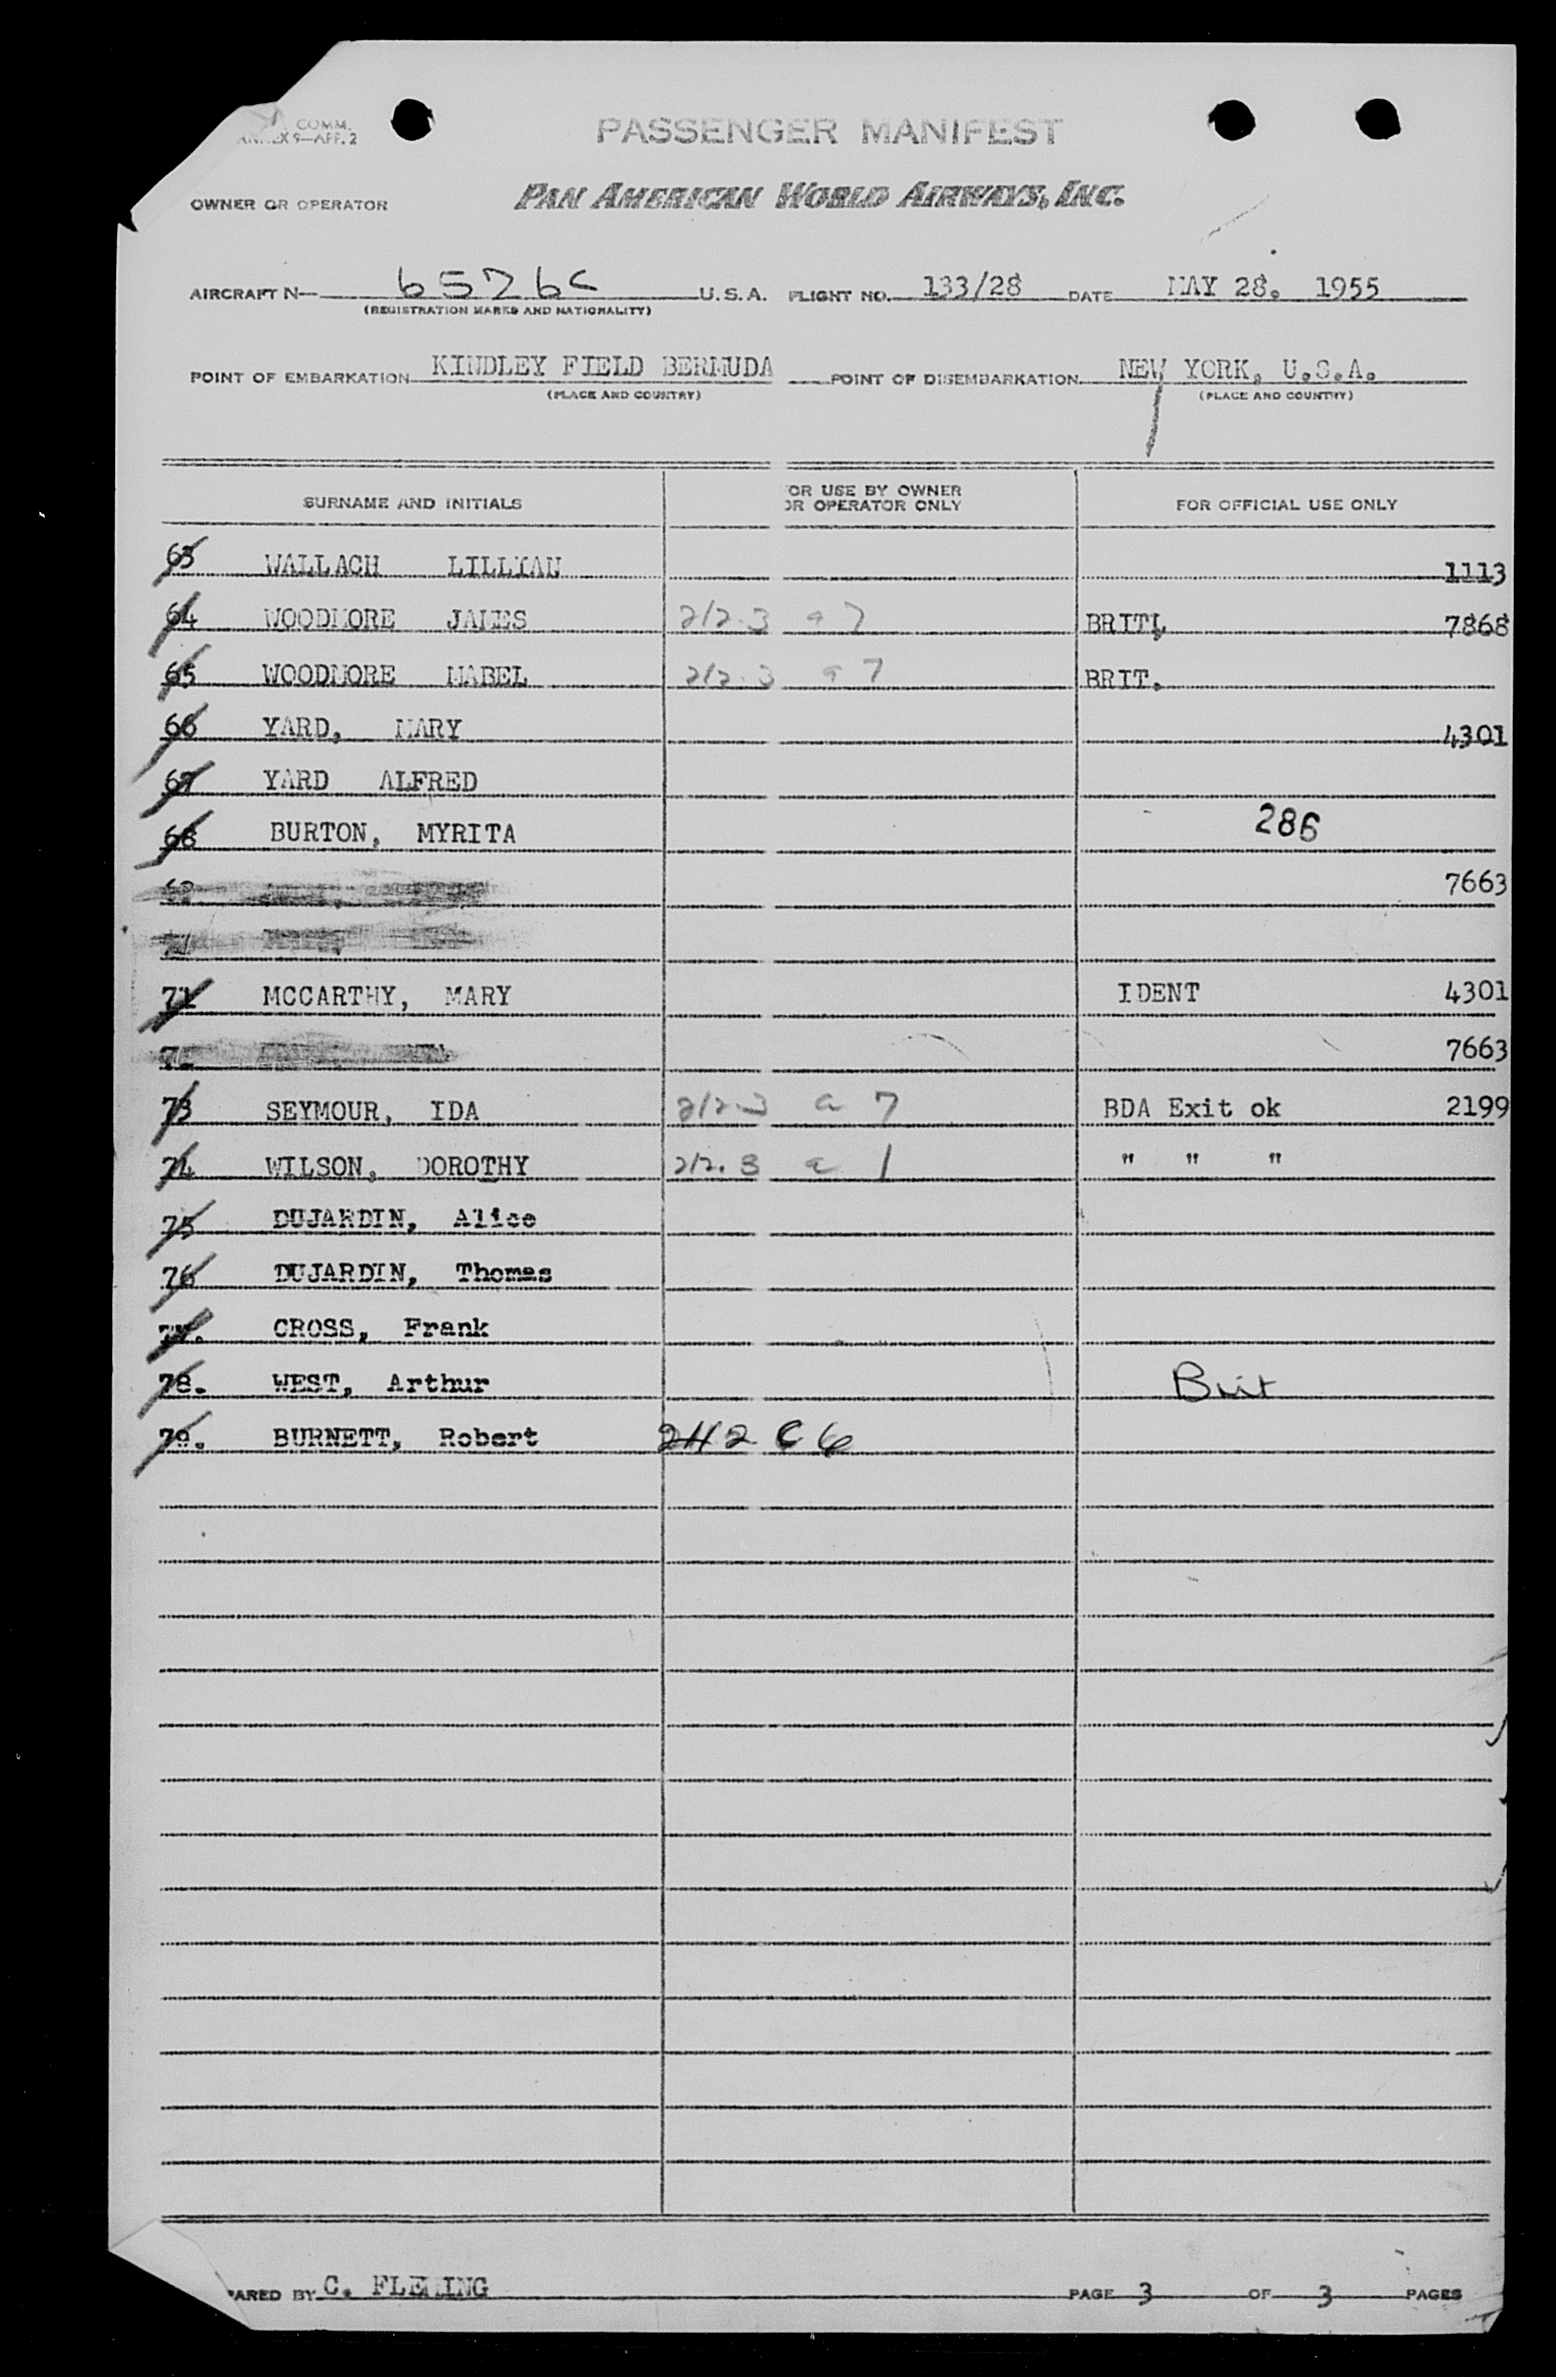 COMM.
ANNEX 9—APP. 2
PASSENGER MANIFEST
OWNER OR OPERATOR PAN AMERICAN WORLD AIRWAYS, INC.
AIRCRAFT N— 6526C U.S.A. FLIGHT NO. 133/28 DATE MAY 28. 1955
(REGISTRATION MARKS AND NATIONALITY)
POINT OF EMBARKATION KINDLEY FIELD BERMUDA POINT OF DISEMBARKATION NEW YORK, U.S.A.
(PLACE AND COUNTRY) (PLACE AND COUNTRY)
SURNAME AND INITIALS OR USE BY OWNER OR OPERATOR ONLY FOR OFFICIAL USE ONLY
63 WALLACH LILLYAN 1113
64 WOODMORE JAMES 212.3 a 7 BRIT. 7868
65 WOODMORE MABEL 212.3 a 7 BRIT.
66 YARD, MARY 4301
67 YARD ALFRED
68 BURTON, MYRITA 286
7663
71 MCCARTHY, MARY IDENT 4301
7663
73 SEYMOUR, IDA 212.3 a 7 BDA Exit ok 2199
74 WILSON, DOROTHY 212.3 a 1 " " "
75 DUJARDIN, Alice
76 DUJARDIN, Thomas
77. CROSS, Frank
78. WEST, Arthur Brit
79. BURNETT, Robert 242 C6
PARED BY C. FLEMING PAGE 3 OF 3 PAGES